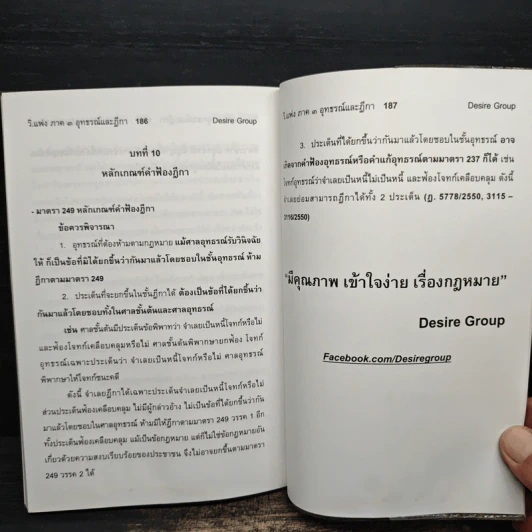 วิ.แพ่ง ภาค ๓ อุทธรณ์และฎีกา 186 Desire Group
บทที่ 10
หลักเกณฑ์คำฟ้องฎีกา
- มาตรา 249 หลักเกณฑ์คำฟ้องฎีกา
ข้อควรพิจารณา
1. อุทธรณ์ที่ต้องห้ามตามกฎหมาย แม้ศาลอุทธรณ์รับวินิจฉัย
ให้ ก็เป็นข้อที่มิได้ยกขึ้นว่ากันมาแล้วโดยชอบในชั้นอุทธรณ์ ห้าม
ฎีกาตามมาตรา 249
2. ประเด็นที่จะยกขึ้นในชั้นฎีกาได้ ต้องเป็นข้อที่ได้ยกขึ้นว่า
กันมาแล้วโดยชอบทั้งในศาลชั้นต้นและศาลอุทธรณ์
เช่น ศาลชั้นต้นมีประเด็นข้อพิพาทว่า จำเลยเป็นหนี้โจทก์หรือไม่
และฟ้องโจทก์เคลือบคลุมหรือไม่ ศาลชั้นต้นพิพากษายกฟ้อง โจทก์
อุทธรณ์เฉพาะประเด็นว่า จำเลยเป็นหนี้โจทก์หรือไม่ ศาลอุทธรณ์
พิพากษาให้โจทก์ชนะคดี
ดังนี้ จำเลยฎีกาได้เฉพาะประเด็นจำเลยเป็นหนี้โจทก์หรือไม่
ส่วนประเด็นฟ้องเคลือบคลุม ไม่มีผู้กล่าวอ้าง ไม่เป็นข้อที่ได้ยกขึ้นว่ากัน
มาแล้วโดยชอบในศาลอุทธรณ์ ห้ามมิให้ฎีกาตามมาตรา 249 วรรค 1 อีก
ทั้งประเด็นฟ้องเคลือบคลุม แม้เป็นข้อกฎหมาย แต่ก็ไม่ใช่ข้อกฎหมายอัน
เกี่ยวด้วยความสงบเรียบร้อยของประชาชน จึงไม่อาจยกขึ้นตามมาตรา
249 วรรค 2 ได้
วิ.แพ่ง ภาค ๓ อุทธรณ์และฎีกา 187 Desire Group
3. ประเด็นที่ได้ยกขึ้นว่ากันมาแล้วโดยชอบในชั้นอุทธรณ์ อาจ
เกิดจากคำฟ้องอุทธรณ์หรือคำแก้อุทธรณ์ตามมาตรา 237 ก็ได้ เช่น
โจทก์อุทธรณ์ว่าจำเลยเป็นหนี้ไม่เป็นหนี้ และฟ้องโจทก์เคลือบคลุม ดังนี้
จำเลยย่อมสามารถฎีกาได้ทั้ง 2 ประเด็น (ฎ. 5778/2550, 3115 –
3116/2550)
"มีคุณภาพ เข้าใจง่าย เรื่องกฎหมาย"
Desire Group
Facebook.com/Desiregroup